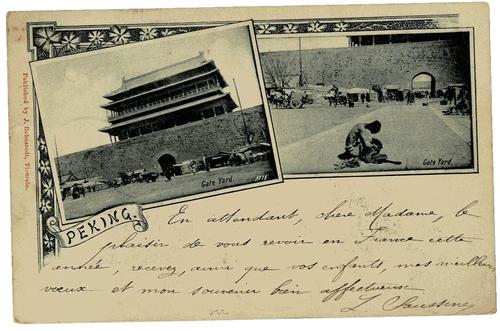 Published by J. Tientsin.
Gate Yard.
Gate Yard.
PEKING.
En attendant, chère Madame, le
plaisir de vous revoir en France cette
année, recevez, ainsi que vos enfants, mes meilleurs
vœux et mon souvenir bien affectueux